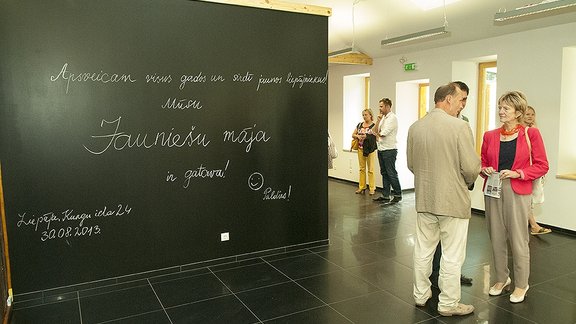 Apsveicam visus gados un sirdī jaunos liepājniekus!
Mūsu
Jauniešu māja
ir gatava!
Paldies!
Liepāja, Kungu iela 24
30.08.2013.